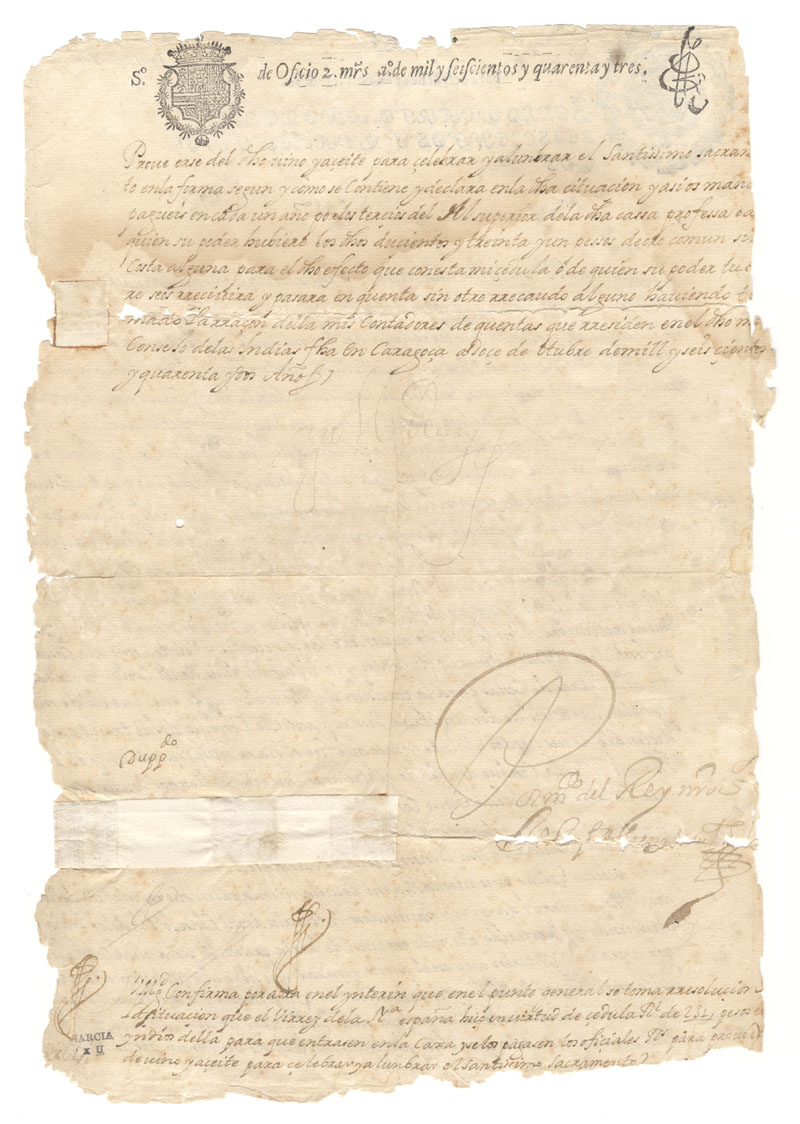 S.º de Oficio 2. mrs aº. de mil y seiscientos y quarenta y tres.
Proue erse del dho uino y açeite para çelebrar y alunbrar el Santissimo sacram
to en la forma segun y como se Contiene y declara en la dha cituaçion y asi os man
pagueis en cada un año por los tercios del Al superior de la dha cassa professa o a
quien su poder hubiere los dhos ducientos y treinta y un pesos de oro comun sin
Costa alguna para el dho efecto que con esta mi çedula o de quien su poder tu
re seis rreciuira y pasara en quenta sin otro rrecaudo alguno hauiendo to
mado Larraçon della mis Contadores de quentas que rresiden en el dho mi
Consejo de las Indias fha en Caragoça a doçe de otubre de mill y seis çientos
y quarenta y dos Años
yo el Rey
Dupp.do
Por m.do del Rey nro s.
Confirma por aora en el ynterin que en el punto general se toma rresolucion
situacion que el Virrey de la N.ua españa hiço en uirtud de cedula Rl de 231 pesos e
yndios della para que entrasen en la Caxa y se los pagasen los oficiales Rs para proueer
de uino y açeite para celebrar y alunbrar el santissimo sacramento
GARCIA